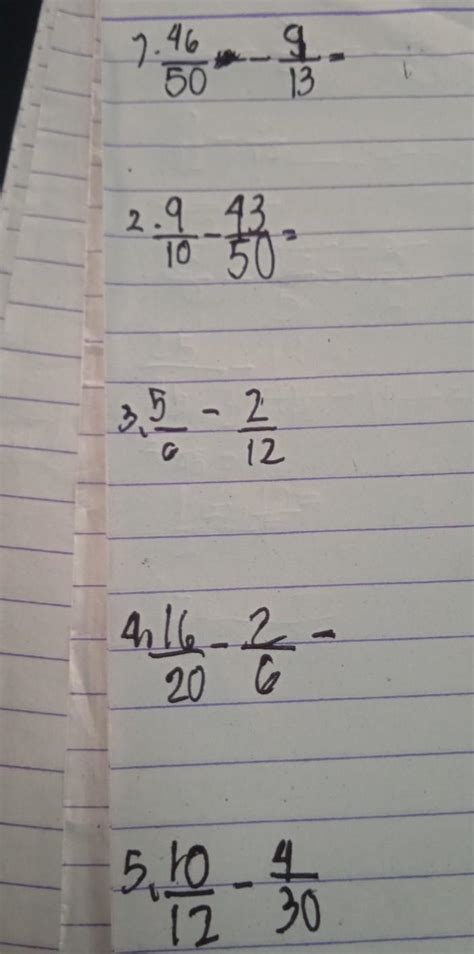 1. 46/50 - 9/13 =
2. 9/10 - 43/50 =
3. 5/6 - 2/12
4. 16/20 - 2/6 -
5. 10/12 - 4/30